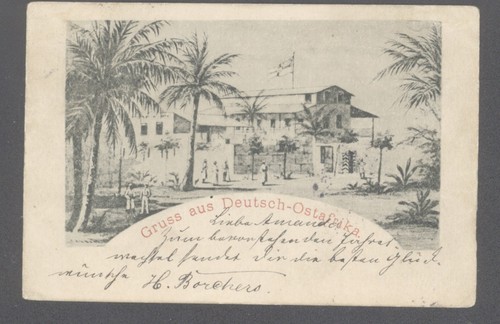 Gruss aus Deutsch-Ostafrika.
Liebe Amanda!
Zum bevorstehenden Jahres-
wechsel sendet dir die besten Glück-
wünsche H. Borchers.